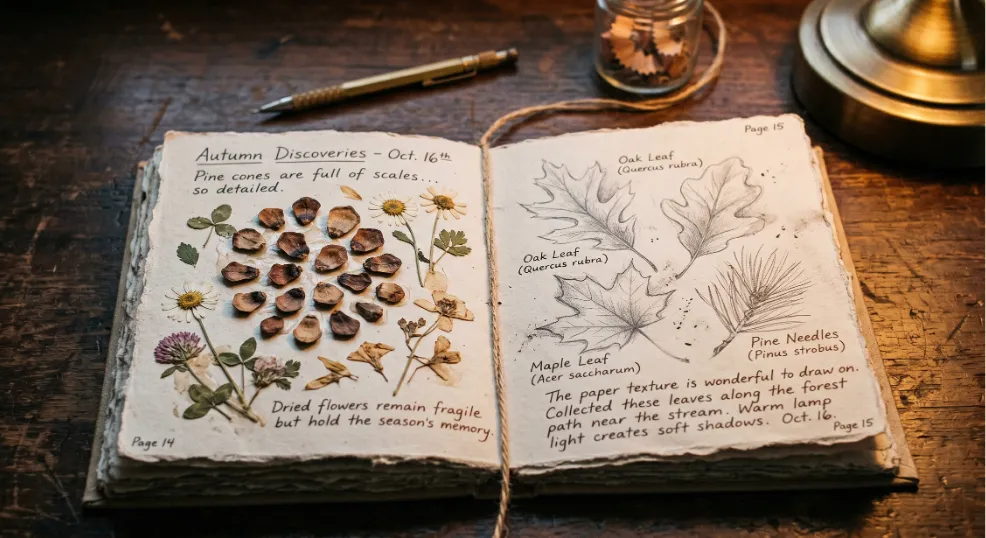 Autumn Discoveries – Oct. 16th
Pine cones are full of scales...
so detailed.
Dried flowers remain fragile
but hold the season's memory.
Page 14
Page 15
Oak Leaf
(Quercus rubra)
Oak Leaf
(Quercus rubra)
Maple Leaf
(Acer saccharum)
Pine Needles
(Pinus strobus)
The paper texture is wonderful to draw on.
Collected these leaves along the forest
path near the stream. Warm lamp
light creates soft shadows. Oct. 16.
Page 15